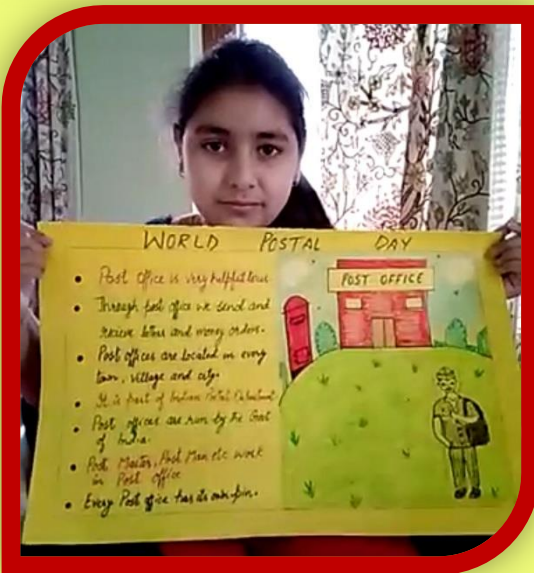 WORLD POSTAL DAY
POST OFFICE
• Post Office is very helpful to us
• Through post office we send and
recieve letters and money orders.
• Post offices are located in every
town, village and city.
• It is part of Indian Postal Department
• Post offices are run by the Govt
of India.
• Post Master, Post Man etc work
in Post office
• Every Post office has its own pin.